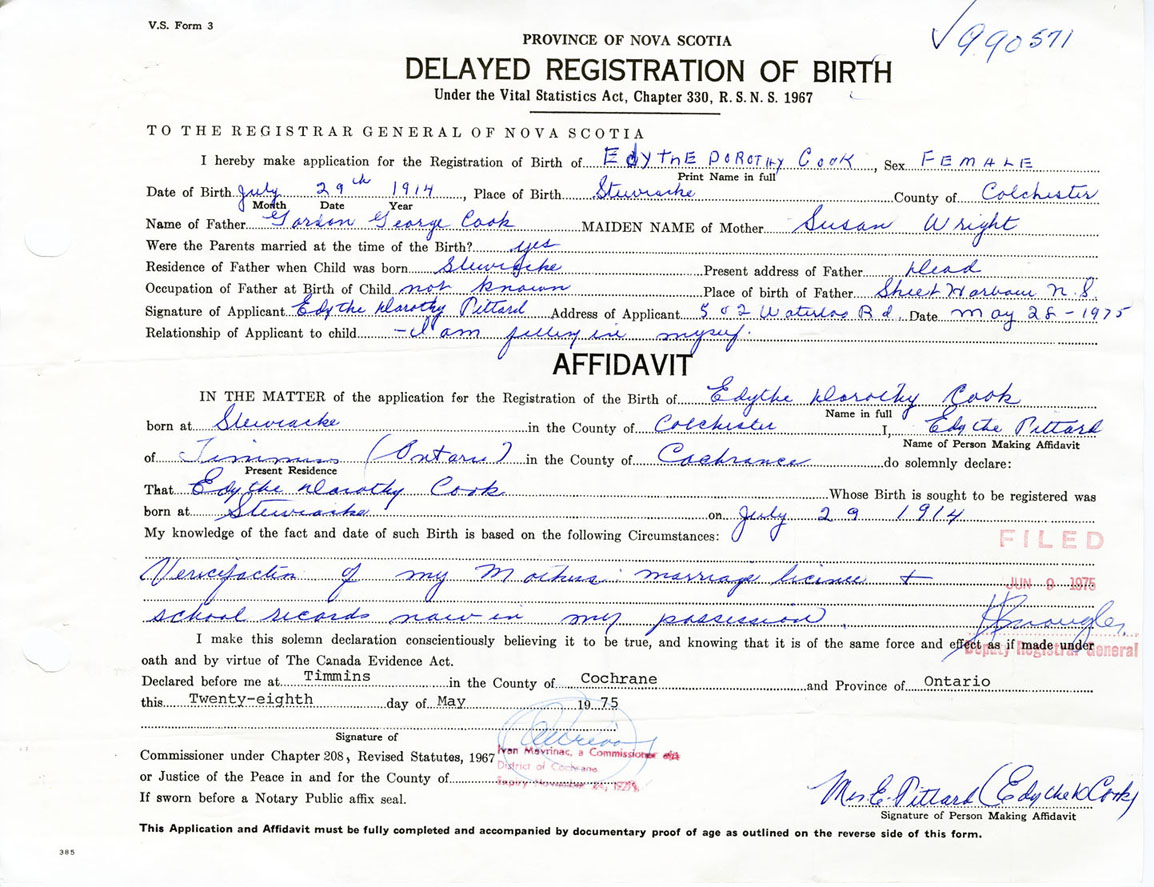 V.S. Form 3
√990571
PROVINCE OF NOVA SCOTIA
DELAYED REGISTRATION OF BIRTH
Under the Vital Statistics Act, Chapter 330, R. S. N. S. 1967
TO THE REGISTRAR GENERAL OF NOVA SCOTIA
I hereby make application for the Registration of Birth of EdYTHE DOROTHY COOK, Sex FEMALE
Print Name in full
Date of Birth July 29th 1914, Place of Birth Stewiacke County of Colchester
Month Date Year
Name of Father Gordon George Cook MAIDEN NAME of Mother Susan Wright
Were the Parents married at the time of the Birth? yes
Residence of Father when Child was born Stewiacke Present address of Father Dead
Occupation of Father at Birth of Child not known Place of birth of Father Sheet Harbour N.S.
Signature of Applicant Edythe Dorothy Pittard Address of Applicant 502 Waterloo Rd. Date May 28-1975
Relationship of Applicant to child - I am filling in myself.
AFFIDAVIT
IN THE MATTER of the application for the Registration of the Birth of Edythe Dorothy Cook
Name in full
born at Stewiacke in the County of Colchester I, Edythe Pittard
Name of Person Making Affidavit
of Timmins (Ontario) in the County of Cochrance do solemnly declare:
Present Residence
That Edythe Dorothy Cook Whose Birth is sought to be registered was
born at Stewiacke on July 29 1914
My knowledge of the fact and date of such Birth is based on the following Circumstances:
FILED
Vericfaction of my Mothers marriage licince +
JUN 9 1975
school records now in my possession.
I make this solemn declaration conscientiously believing it to be true, and knowing that it is of the same force and effect as if made under
Deputy Registrar General
oath and by virtue of The Canada Evidence Act.
Declared before me at Timmins in the County of Cochrane and Province of Ontario
this Twenty-eighth day of May 1975
Signature of
Commissioner under Chapter 208, Revised Statutes, 1967
Ivan Mavrinac, a Commissioner
District of Cochrane
or Justice of the Peace in and for the County of
Expiry November
If sworn before a Notary Public affix seal.
Mrs E. Pittard (Edythe D Cook)
Signature of Person Making Affidavit
This Application and Affidavit must be fully completed and accompanied by documentary proof of age as outlined on the reverse side of this form.
385